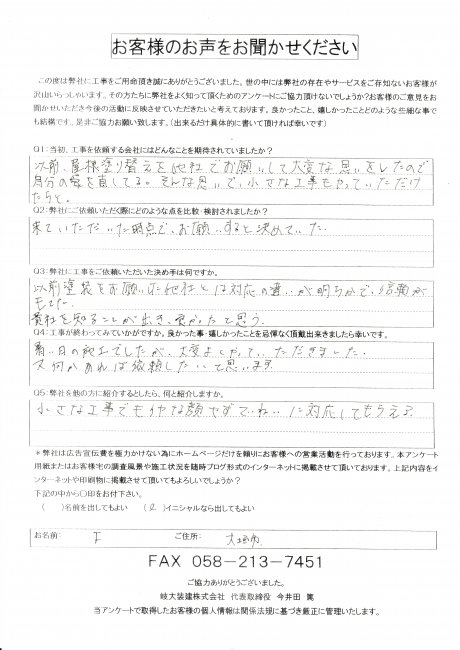 お客様のお声をお聞かせください
この度は弊社に工事をご用命頂き誠にありがとうございました。世の中には弊社の存在やサービスをご存知ないお客様が
沢山いらっしゃいます。その方たちに弊社をよく知って頂くためのアンケートにご協力頂けないでしょうか?お客様のご意見をお
聞かせいただき今後の活動に反映させていただきたいと考えております。良かったこと、嬉しかったことどのような些細な事で
も結構です。是非ご協力お願い致します。(出来るだけ具体的に書いて頂ければ幸いです)
Q1:当初、工事を依頼する会社にはどんなことを期待されていましたか?
以前、屋根塗り替えを他社でお願いして大変な思いをしたので
自分の家を直してる。そんな思いで、小さな工事もやっていただけ
たらと。
Q2:弊社にご依頼いただく際にどのような点を比較・検討されましたか?
来ていただいた時点で、お願いすると決めていた.
Q3:弊社に工事をご依頼いただいた決め手は何ですか。
以前塗装をお願いした他社とは対応の違いが明らかで、信頼が
もてた.
貴社を知ることが出き、良かったと思う.
Q4:工事が終わってみていかがですか。良かった事・嬉しかったことを忌憚なく頂戴出来ましたら幸いです。
暑い日の施工でしたが、大変よくやっていただきました.
又何かあれば依頼したいと思います.
Q5:弊社を他の方に紹介するとしたら、何と紹介しますか。
小さな工事でもイヤな顔せずていねいに対応してもらえる.
*弊社は広告宣伝費を極力かけない為にホームページだけを頼りにお客様への営業活動を行っております。本アンケート
用紙またはお客様宅の調査風景や施工状況を随時ブログ形式のインターネットに掲載させて頂いております。上記内容をイ
ンターネットや印刷物に掲載させて頂いてもよろしいでしょうか?
下記の中から〇印をお付下さい。
( )名前を出してもよい ( )イニシャルなら出してもよい
お名前: ご住所: 大垣市
FAX 058-213-7451
ご協力ありがとうございました。
岐大装建株式会社 代表取締役 今井田 篤
当アンケートで取得したお客様の個人情報は関係法規に基づき厳正に管理いたします。